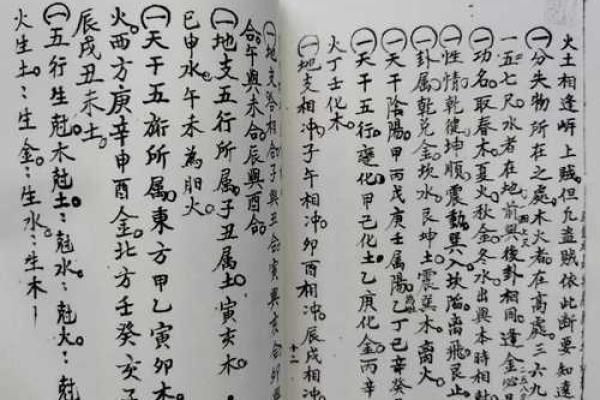 火土相逢屽上賊。但凡盜賊依此斷要知遠
㊀分失物所在之處。木火者在高處。三六九
一五七尺。水者在地前與後卦相同。逢金必是
㊀功名取春木。夏火。秋金。冬水。出與本時相
㊀性情乾健。坤順。震動。巽入。坎陷。离飛。艮止。
㊀卦属乾兑金。坎水。艮坤土。震巽木。离火。
㊀天干陰陽。甲丙戊庚壬属陽。乙丁己辛癸
㊀天干五行變化。甲己化土。乙庚化金。丙辛
火。丁壬化木。
㊀地支相冲。子午相冲。卯酉相冲。辰戌相冲。
十二
㊀地支答相合。子與丑合。寅與亥合。卯與
合。午與未合。辰與酉合。
㊀地支五行所属。子丑属土。寅亥木。
巳申水。午未為胆火
㊀天干五行所属。東方甲乙寅卯木。
火。西方庚辛申酉金。北方壬癸亥子
辰戌丑未土。
㊀五行生尅。木尅土。土尅水。水尅火。火尅
火生土。土生金。金生水。水生木